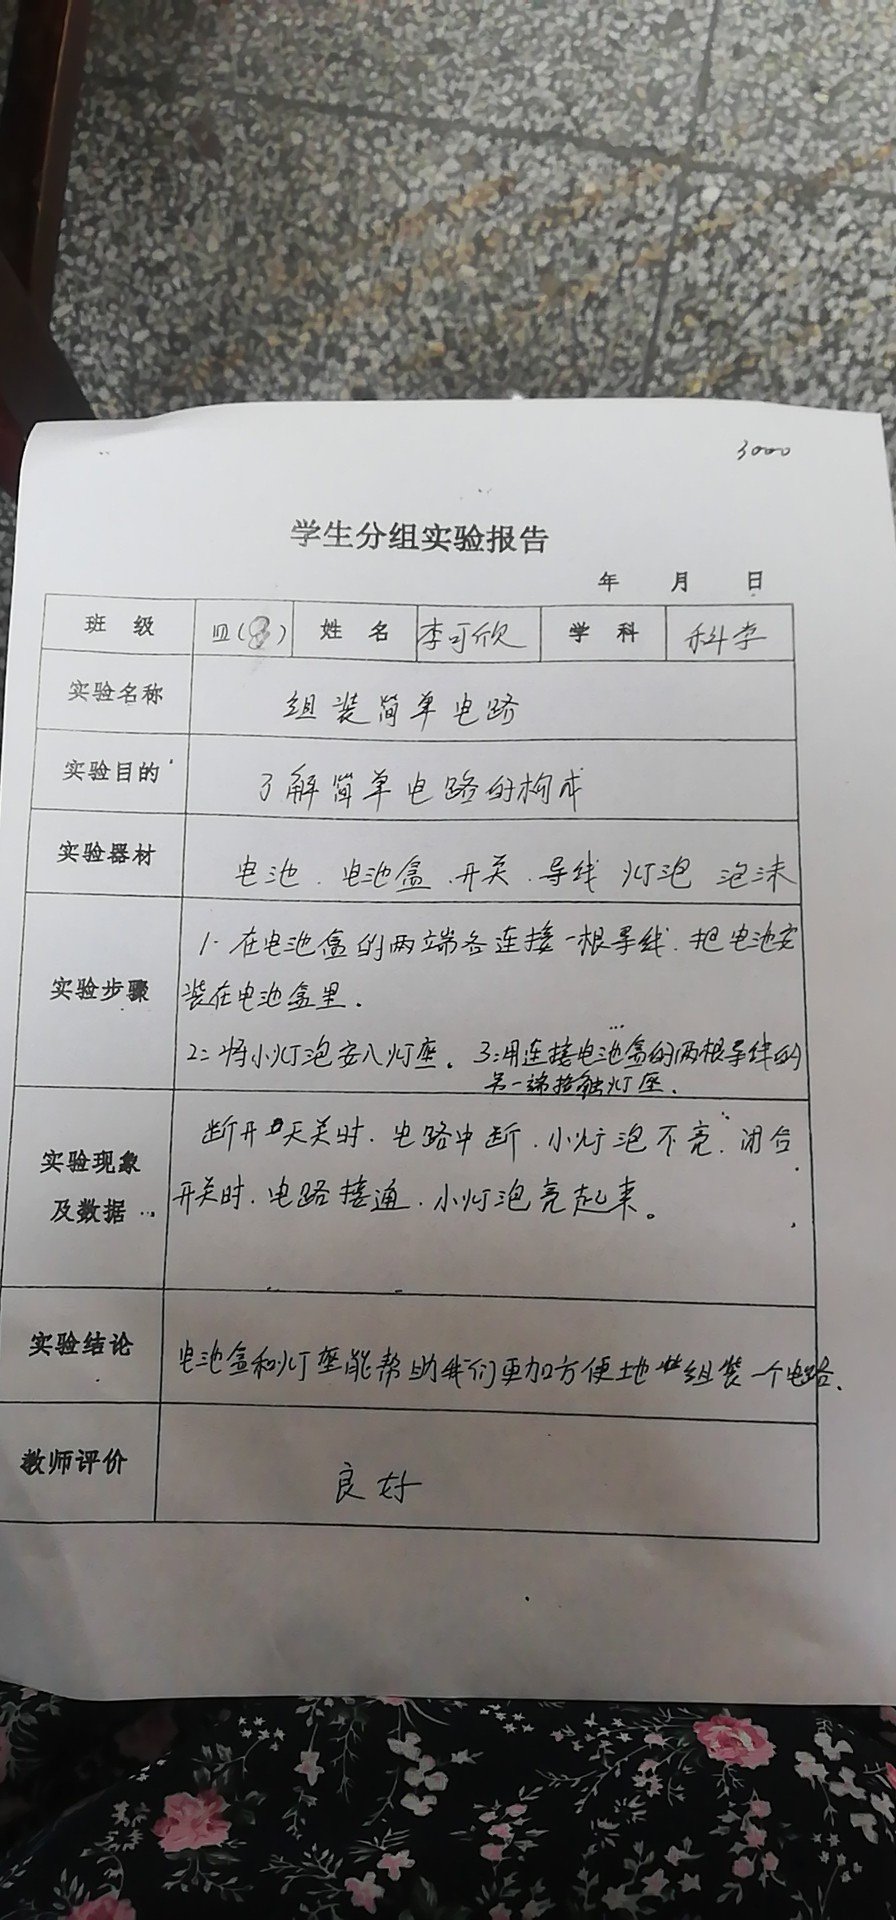 3000
学生分组实验报告
年 月 日
班 级 四(8) 姓 名 李可欣 学 科 科学
实验名称 组装简单电路
实验目的 了解简单电路的构成
实验器材 电池、电池盒、开关、导线 灯泡 泡沫
实验步骤 1.在电池盒的两端各连接一根导线.把电池安
装在电池盒里.
2:将小灯泡安入灯座。 3:用连接电池盒的两根导线的
另一端接触灯座.
实验现象及数据 断开开关时.电路中断.小灯泡不亮.闭合
开关时.电路接通.小灯泡亮起来。
实验结论 电池盒和灯座能帮助我们更加方便地组装一个电路.
教师评价 良好